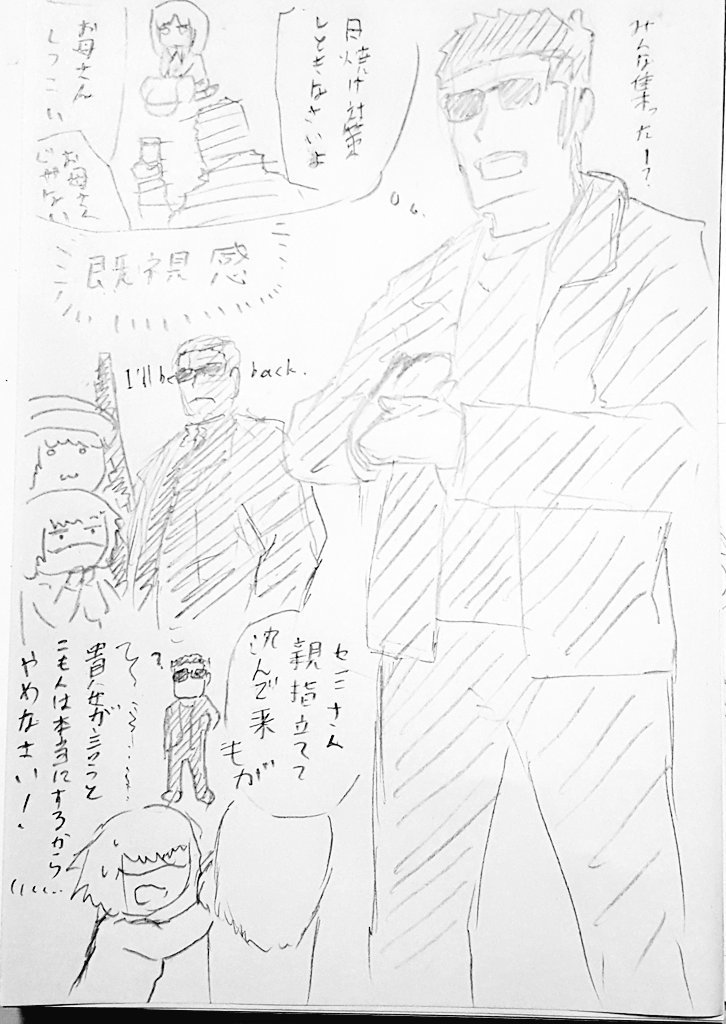 みんな集まった!?
日焼け対策
しときなさいよ
お母さん
しつこい
お母さん
じゃない
既視感
I'll be back.
セニさん
親指立てて
沈んで来
もが
貴女が言うと
こも人は本当にするから
やめなさい!